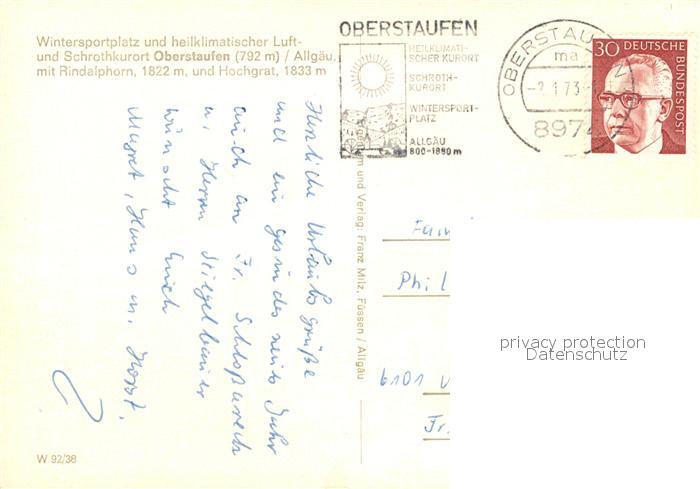 Wintersportplatz und heilklimatischer Luft-
und Schrothkurort Oberstaufen (792 m) / Allgäu,
mit Rindalphorn, 1822 m, und Hochgrat, 1833 m
OBERSTAUFEN
HEILKLIMATI-
SCHER KURORT
SCHROTH-
KURORT
WINTERSPORT-
PLATZ
ALLGÄU
800-1880 m
OBERSTAUFEN
ma
-2.1.73-
897
30 DEUTSCHE
BUNDESPOST
Herzliche Urlaubsgrüße
und ein gesundes neues Jahr
auch an Fr.
u. Herrn Stiegelbauer
wünscht Euch
Margret, Hans u. Horst.
und Verlag: Franz Milz, Füssen / Allgäu
Fam
Phil
6101
Fr.
privacy protection
Datenschutz
W 92/38